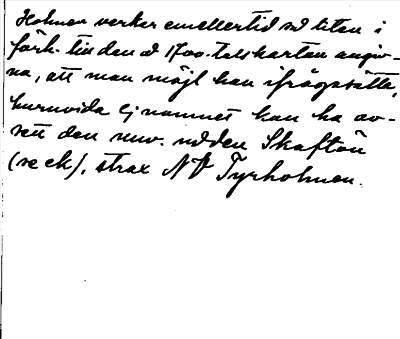 Holmen verkar emellertid så liten i
förh. till den å 1700-talskartan angiv-
na, att man möjl kan ifrågasätta,
huruvida ej namnet kan ha av-
sett den nuv. udden Skaftön
(se ek), strax NV Tyrholmen.